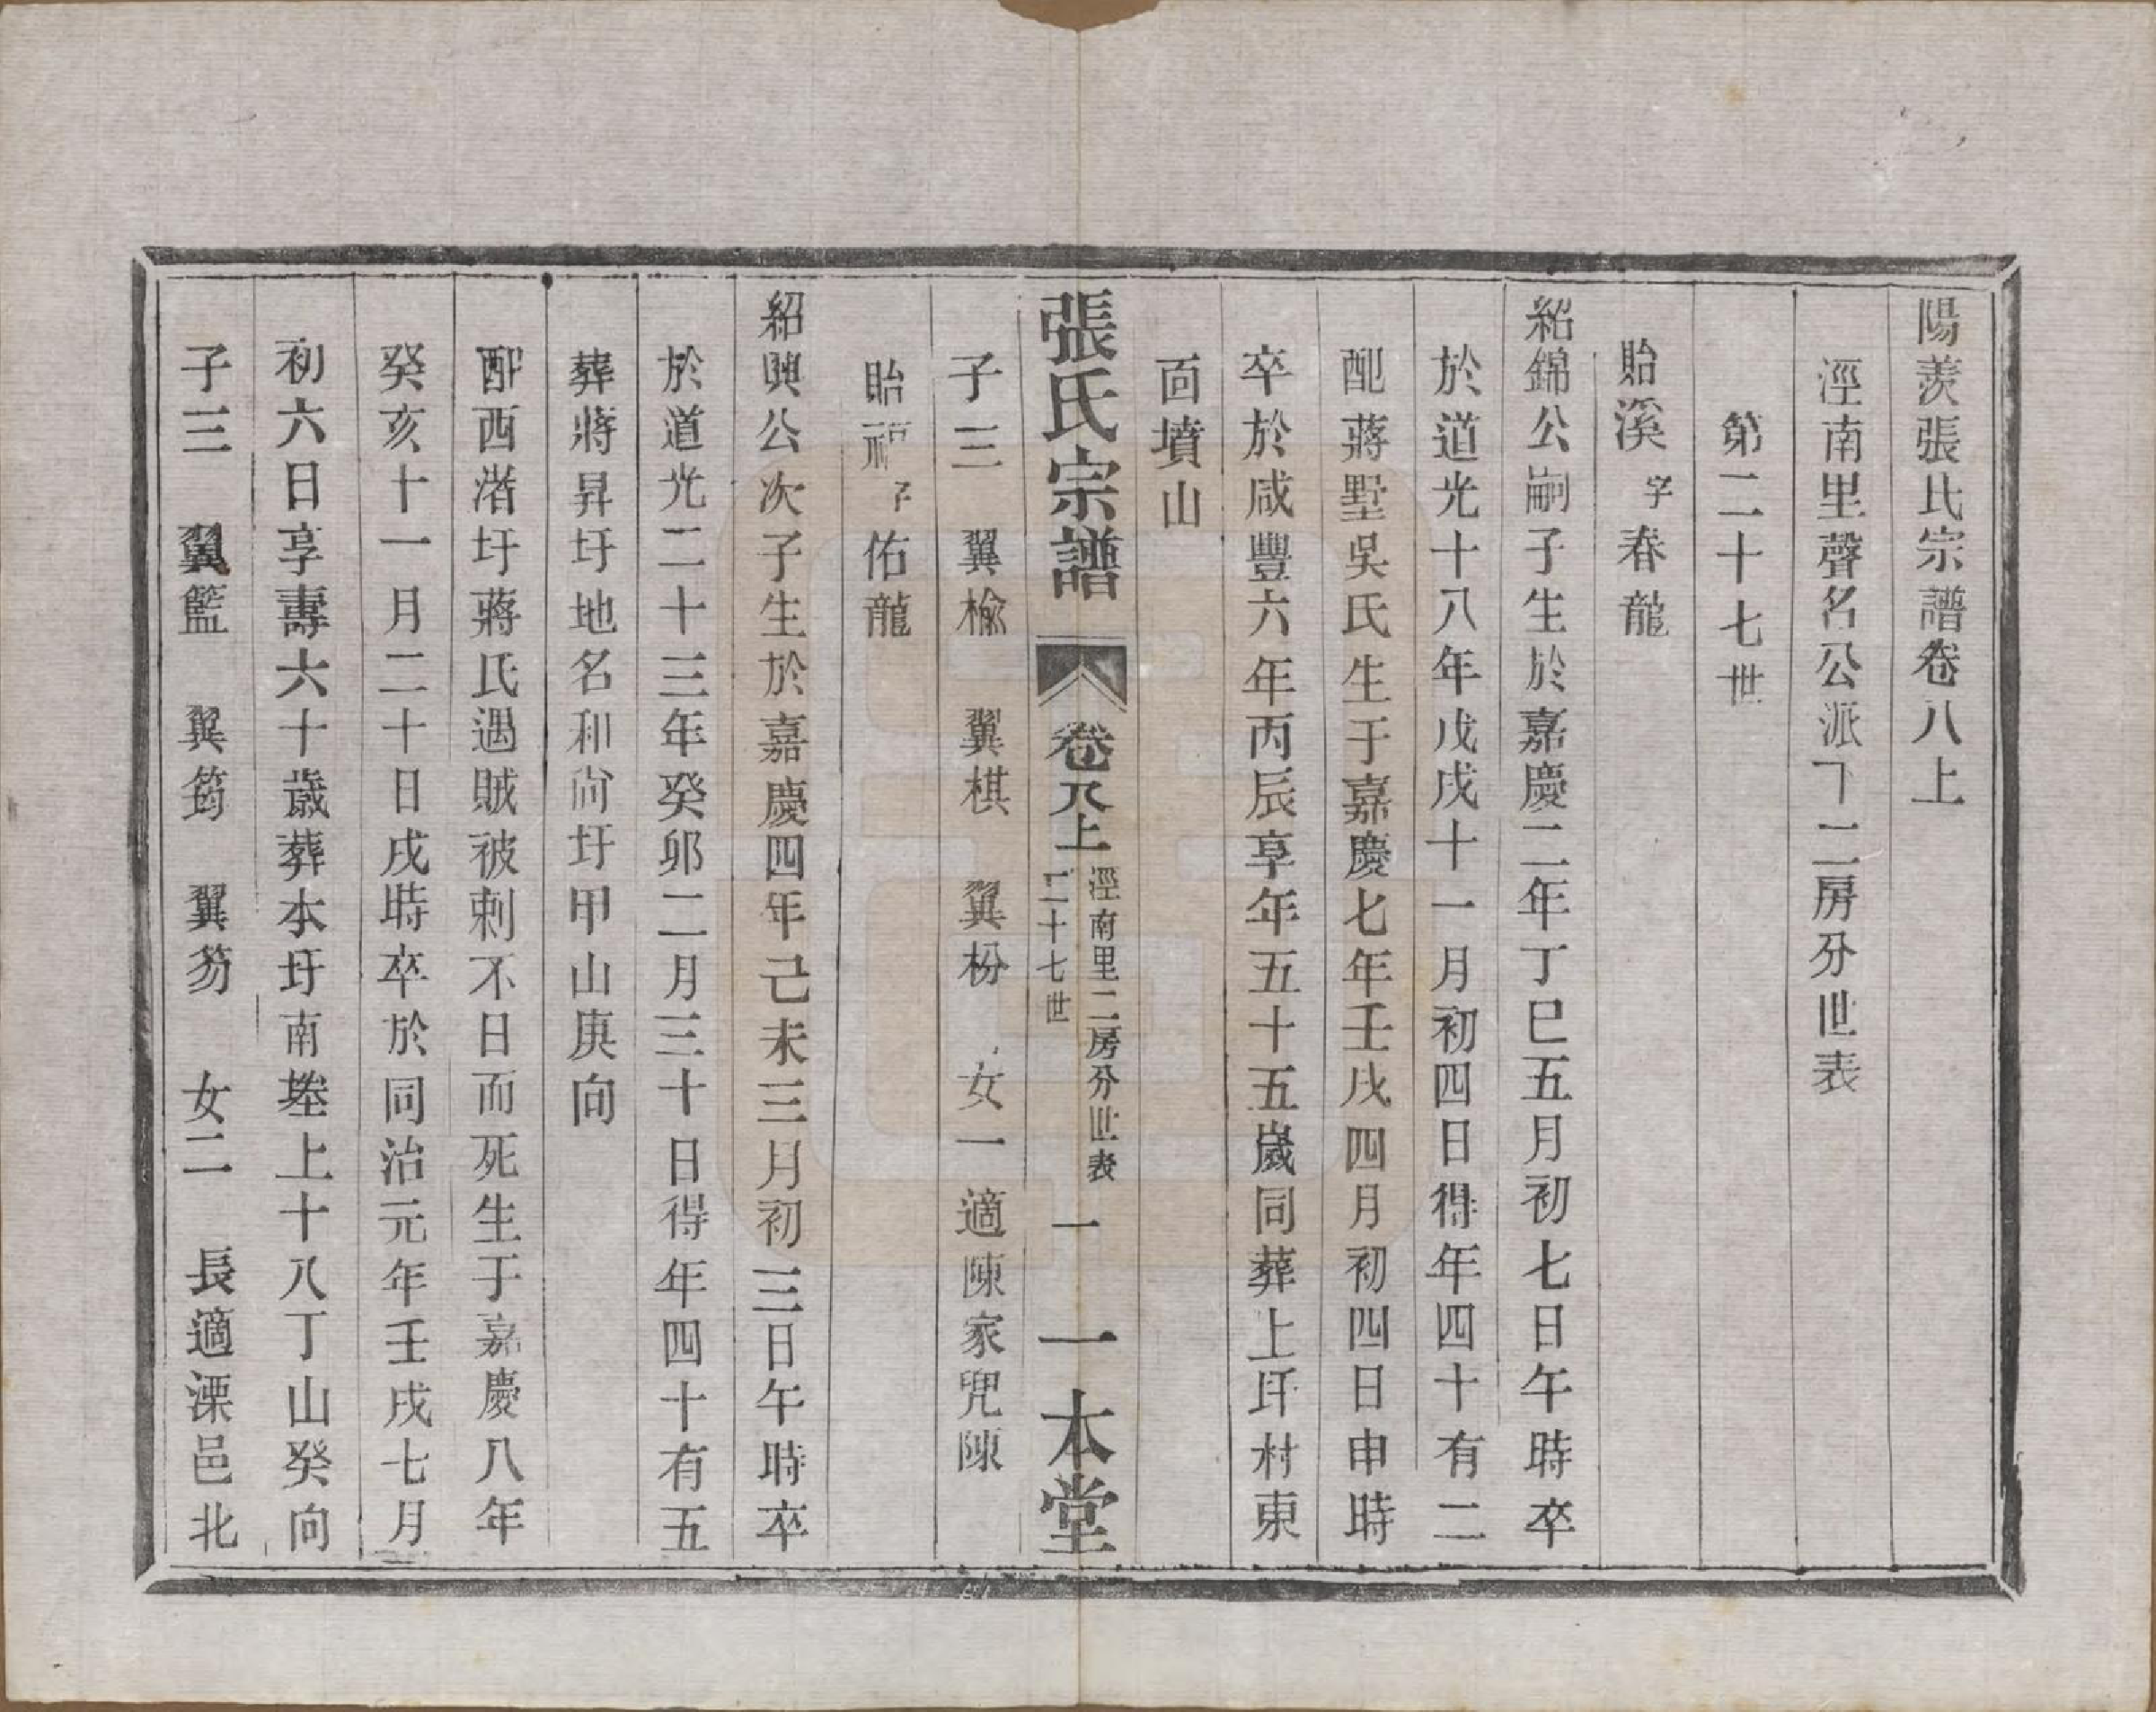 陽羨張氏宗譜卷八上
涇南里聲名公派下二房分世表
第二十七世
貽溪字春龍
紹錦公嗣子生於嘉慶二年丁巳五月初七日午時卒
於道光十八年戊戌十一月初四日得年四十有二
配蔣墅吳氏生于嘉慶七年壬戌四月初四日申時
卒於咸豐六年丙辰享年五十五歲同葬上圩村東
面墳山
張氏宗譜 卷八上 涇南里二房分世表 二十七世 一 一本堂
子三 翼楡 翼棋 翼枌 女一 適陳家兜陳
貽福字佑龍
紹興公次子生於嘉慶四年己未三月初三日午時卒
於道光二十三年癸卯二月三十日得年四十有五
葬蔣昇圩地名和尙圩甲山庚向
配西渚圩蔣氏遇賊被刺不日而死生于嘉慶八年
癸亥十一月二十日戌時卒於同治元年壬戌七月
初六日享壽六十歲葬本圩南埄上十八丁山癸向
子三 翼籃 翼筠 翼笏 女二 長適溧邑北